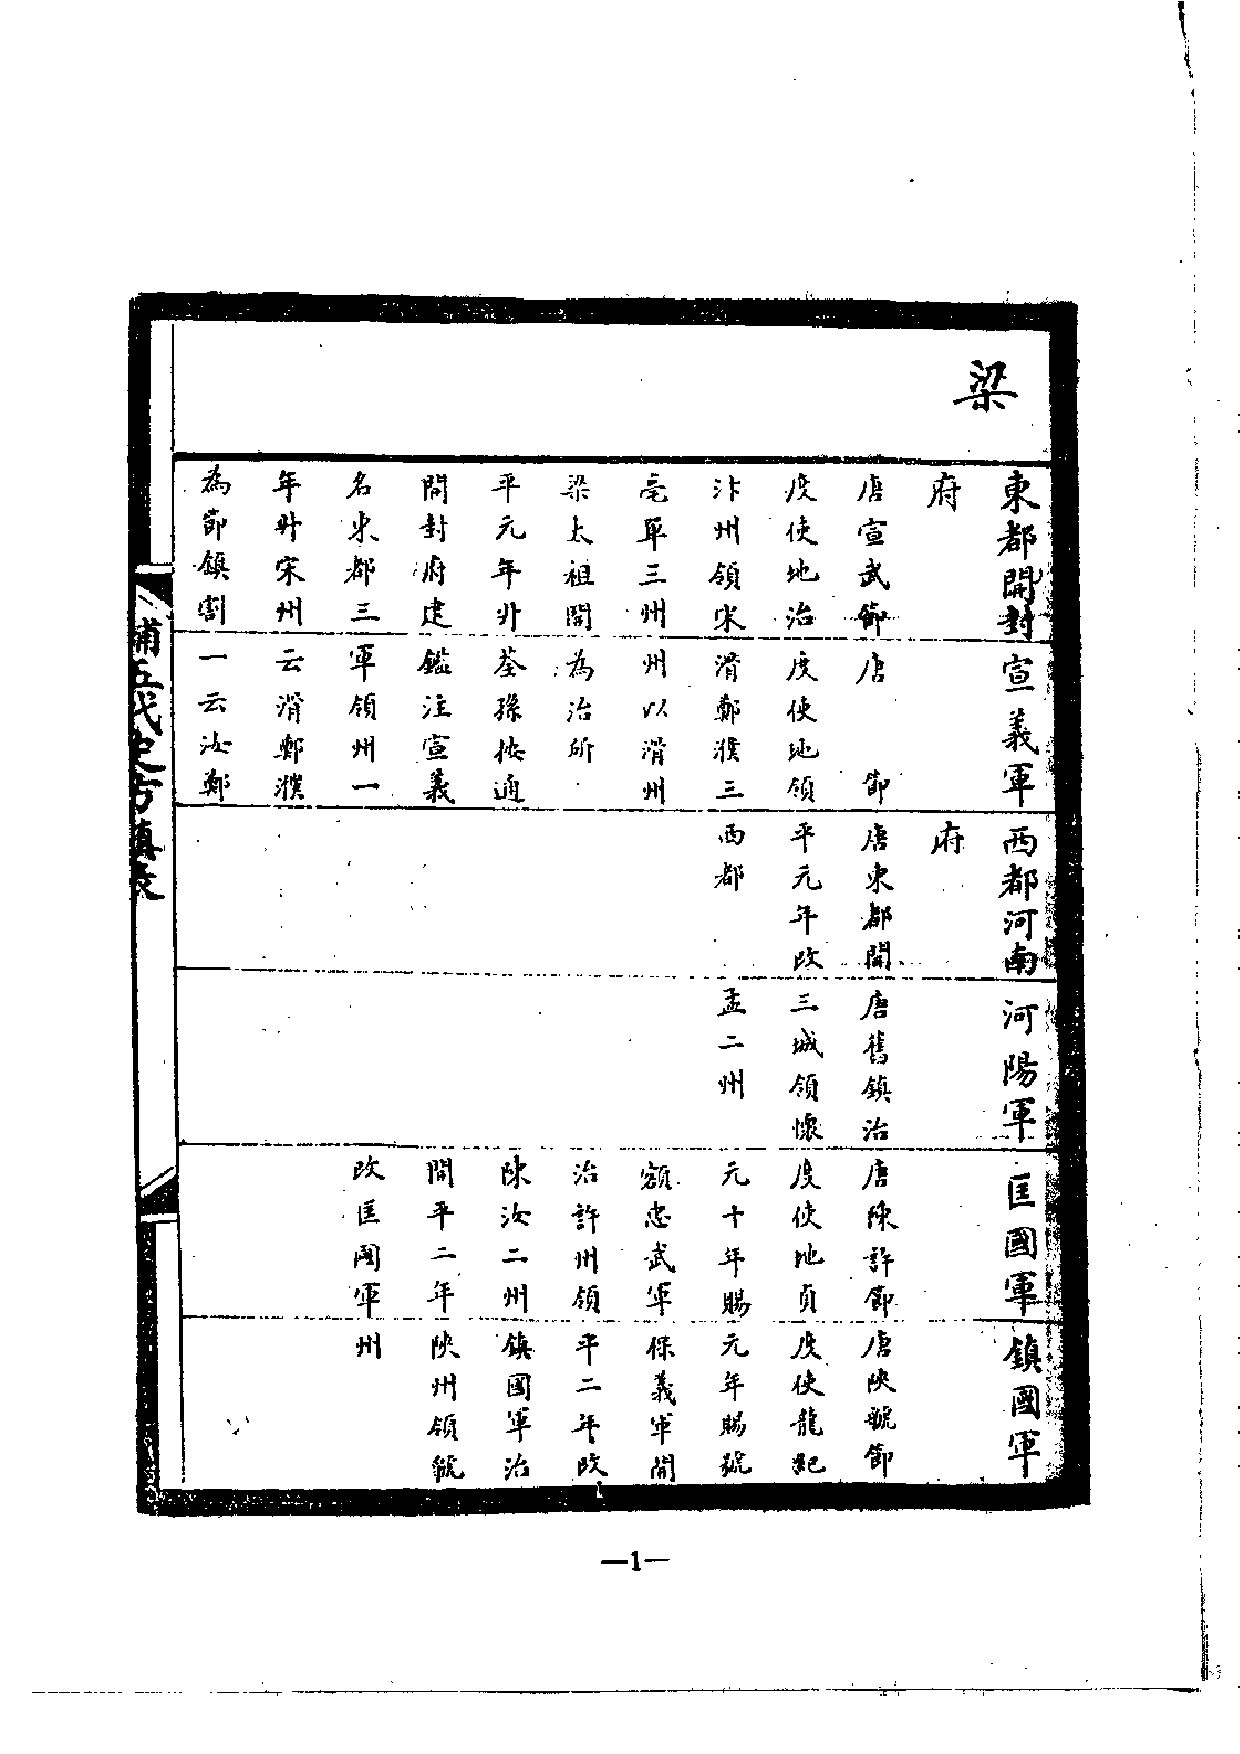 梁
東都開封
府
唐宣武節
度使地治
汴州領宋
亳單三州
梁太祖開
平元年升
開封府建
名東都三
年升宋州
為節鎮割
宣義軍
唐 節
度使地領
滑鄭濮三
州以滑州
為治所
荃孫按通
鑑注宣義
軍領州一
云滑鄭濮
一云汝鄭
西都河南
府
唐東都開
平元年改
西都
河陽軍
唐舊鎮治
三城領懷
孟二州
匡國軍
唐陳許節
度使地貞
元十年賜
額忠武軍
治許州領
陳汝二州
開平二年
改匡國軍
鎮國軍
唐陝虢節
度使龍紀
元年賜號
保義軍開
平二年改
鎮國軍治
陝州領虢
州
補五代史方鎮表
—1—